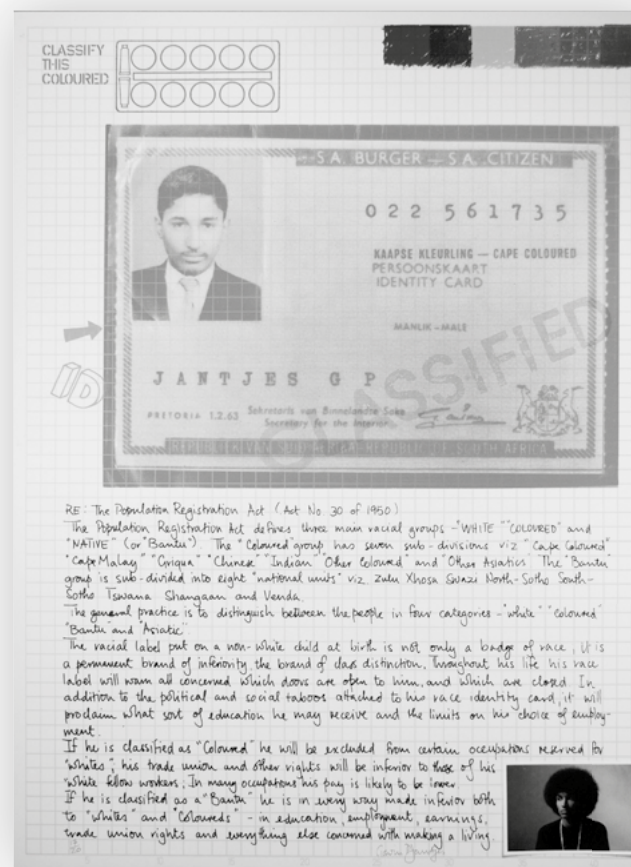 CLASSIFY
THIS
COLOURED
S.A. BURGER – S.A. CITIZEN
022 561735
KAAPSE KLEURLING — CAPE COLOURED
PERSOONSKAART
IDENTITY CARD
MANLIK-MALE
CLASSIFIED
ID
JANTJES G P
PRETORIA 1.2.63 Sekretaris van Binnelandse Sake
Secretary for the Interior
REPUBLIEK VAN SUID-AFRIKA-REPUBLIC OF SOUTH AFRICA
RE: The Population Registration Act (Act No. 30 of 1950)
The Population Registration Act defines three main racial groups - "WHITE" "COLOURED" and
"NATIVE" (or "Bantu"). The "Coloured" group has seven sub-divisions viz "Cape Coloured"
"Cape Malay" "Griqua" "Chinese" "Indian" "Other Coloured" and "Other Asiatics" The "Bantu"
group is sub-divided into eight "national units" viz. Zulu Xhosa Swazi North-Sotho South-
Sotho Tswana Shangaan and Venda.
The general practice is to distinguish between the people in four categories - "white" "coloured"
"Bantu" and "Asiatic".
The racial label put on a non-white child at birth is not only a badge of race, it is
a permanent brand of inferiority, the brand of class distinction, Throughout his life his race
label will warn all concerned which doors are open to him, and which are closed. In
addition to the political and social taboos attached to his race identity card, it will
proclaim what sort of education he may receive and the limits on his choice of employ-
ment.
If he is classified as "Coloured" he will be excluded from certain occupations reserved for
"whites"; his trade union and other rights will be inferior to those of his
"white fellow workers; In many occupations his pay is likely to be lower.
If he is classified as a "Bantu" he is in every way made inferior both
to "whites" and "Coloureds" - in education, employment, earnings,
trade union rights and everything else concerned with making a living.